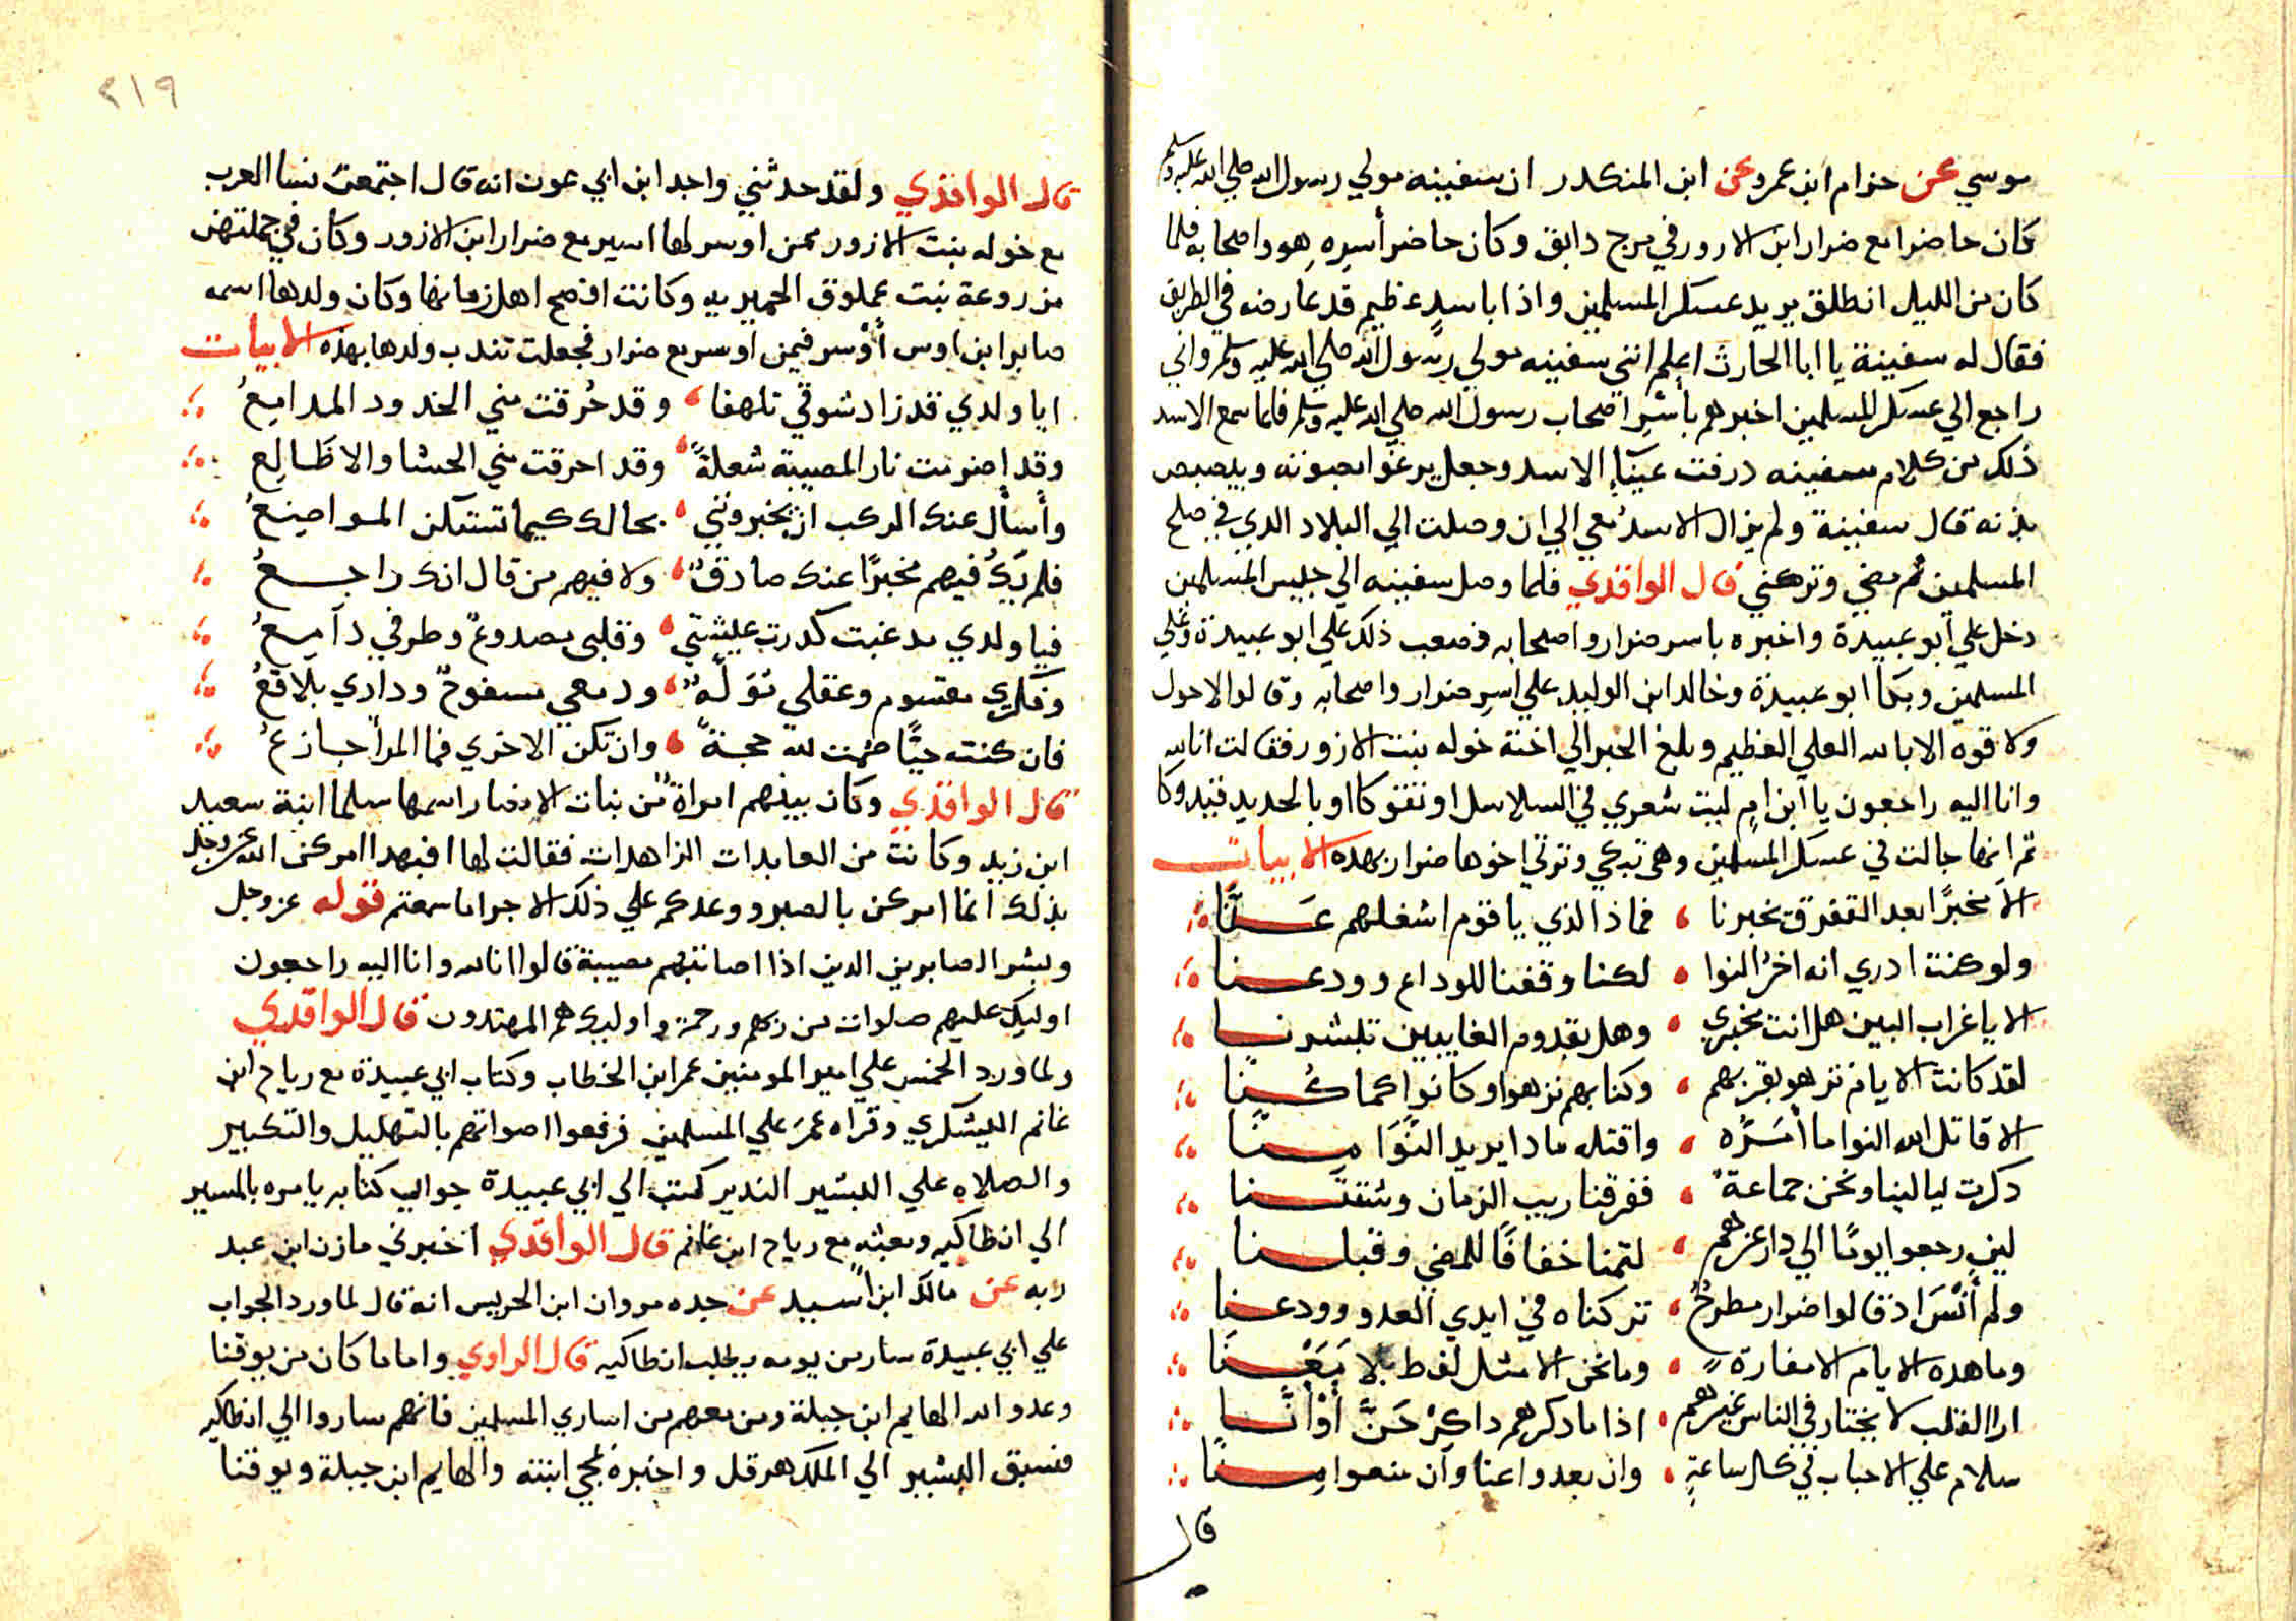 موسي عن حزام ابن عمر وعن ابن المنكدر ان سفينه مولي رسول الله صلي الله عليه وسلم
كان حاضرا مع ضرار ابن الازور في مرج دابق وكان حاضر أسره هو واصحابه فلما
كان من الليل انطلق يريد عسكر المسلمين واذا باسد عظيم قد عارضه في الطريق
فقال له سفينة يا ابا الحارث اعلم انني سفينه مولي رسول الله صلي الله عليه وسلم واني
راجع الي عسكر المسلمين اخبرهم بأسر اصحاب رسول الله صلي الله عليه وسلم فلما سمع الاسد
ذلك من كلام سفينه درفت عيناه الاسد وجعل يرغوا بصوته ويبصبص
بذنه قال سفينة ولم يزال الاسد معي الي ان وصلت الي البلاد الدي في صلح
المسلمين ثم مضي وتركني قال الواقدي فلما وصل سفينه الي جيس المسلمين
دخل علي أبو عبيدة واخبره باسر ضرار واصحابه فصعب ذلك علي ابو عبيدة وعلي
المسلمين وبكا ابو عبيدة وخالد ابن الوليد علي اسر ضرار واصحابه وقالوا لاحول
ولا قوه الا بالله العلي العظيم وبلغ الخبر الي اخته خوله بنت الازور فقالت انا لله
وانا اليه راجعون يا ابن ام ليت شعري في السلاسل اوثقوكا او بالحديد قيدوكا
تم انها جالت في عسكر المسلمين وهي تبكي وترتي اخوها ضرار بهده الابيات
الا مخبرًا بعد التفرق يخبرنا فماذا الذي يا قوم اشغلهم عنا
ولو كنت ادري انه اخر النوا لكنا وقفنا للوداع وودعنا
الا يا غراب البين هل انت مخبري وهل بقدوم الغايبين تبشرنا
لقد كانت الايام تزهو بقربهم وكنا بهم نزهوا وكانوا كما كنا
الا قاتل الله النوا ما أمَرَّه واقتله مادا يريد النَّوَا منا
دكرت ليالينا ونحن جماعة ففرقنا ريب الزمان وشتتنا
لين رجعوا يومًا الي دار عزهم لتمنا خفافًا للمضي وقبلنا
ولم أنسَ اذ قالوا ضرار مطرحٌ تركناه في ايدي العدو وودعنا
وما هده الايام الا معارة وما نحن الا مثل لفظ بلا مَعْنَا
ارا القلب لا يختار في الناس غيرهم اذا ما دكرهم داكِرٌ حَنَّ أوْ أنَّا
سلام علي الاحباب في كل ساعةٍ وان بعدوا عنا وان منعوا منا
قال
٢١٩
قال الواقدي ولقد حدثني واجد ابن ابي عون انه قال اجتمعت نسا العرب
مع خوله بنت الازور ممن اوسر لها اسير مع ضرار ابن الازور وكان في جملتهن
مزروعة بنت عملوق الحميريه وكانت افصح اهل زمانها وكان ولدها اسمه
صابر ابن اوس أُوسر فيمن اوسر مع ضرار فجعلت تندب ولدها بهذه الابيات
ايا ولدي قد زاد شوقي تلهفا وقد حُرقت مني الخدود المدامعُ
وقد اضرمت نار المصيبة شعلةً وقد احرقت مني الحشا والاظَالِع
وأسأل عنك الركب ان يخبرونني بحالك كيما تستكن المواضعُ
فلم يكُ فيهم مخبرًا عنك صادقٌ ولا فيهم من قال انك راجعُ
فيا ولدي مد غبت كدرت عيشتي وقلبى مصدوعٌ وطرفي دامعُ
وفكري مقسوم وعقلي مُوَلَّهٌ ودمعي مسفوحٌ وداري بلاقعُ
فان كنت حيًّا صُمت لله حجةً وان تكن الاخري فما المرأ جازعُ
قال الواقدي وكان بينهم امراة من بنات الانصار اسمها سلما ابنة سعيد
ابن زيد وكانت من العابدات الزاهدات فقالت لها افبهدا امركن الله عز وجل
بذلك انما امركن بالصبر ووعدكم علي ذلك الاجر اما سمعتم قوله عز وجل
وبشر الصابرين الدين اذا اصابتهم مصيبة قالوا انا لله وانا اليه راجعون
اوليك عليهم صلوات من ربهم ورحمة واوليك هم المهتدون قال الواقدي
ولما ورد الخمس علي امير المومنين عمر ابن الخطاب وكتاب ابي عبيدة مع رياح ابن
غانم اليشكري وقراه عمر علي المسلمين فرفعوا اصواتهم بالتهليل والتكبير
والصلاه علي البشير الندير كتب الي ابي عبيدة جواب كتابه يامره بالمسير
الي انطاكيه وبعثه مع رياح ابن غانم قال الواقدي اخبرني مازن ابن عبد
ربه عن مالك ابن اسيد عن جده مروان ابن الحريس انه قال لما ورد الجواب
علي ابي عبيدة سار من يومه يطلب انطاكيه قال الراوي واما ما كان من يوقنا
وعدو الله الهايم ابن جبلة ومن معهم من اساري المسلمين فانهم ساروا الي انطاكيه
فسبق البشير الي الملك هرقل واخبره بمجي ابنته والهايم ابن جبلة ويوقنا